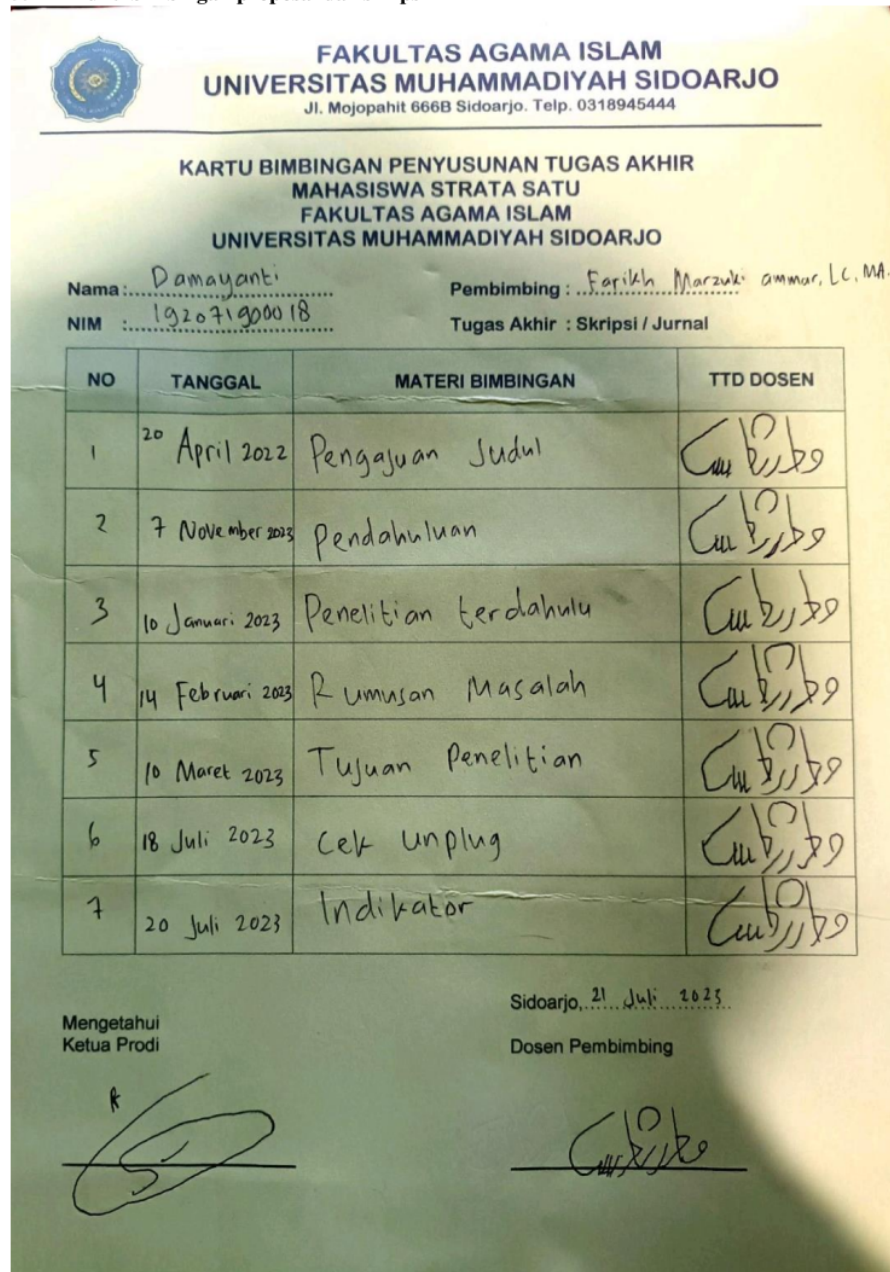 FAKULTAS AGAMA ISLAM
UNIVERSITAS MUHAMMADIYAH SIDOARJO
Jl. Mojopahit 666B Sidoarjo. Telp. 0318945444
KARTU BIMBINGAN PENYUSUNAN TUGAS AKHIR
MAHASISWA STRATA SATU
FAKULTAS AGAMA ISLAM
UNIVERSITAS MUHAMMADIYAH SIDOARJO
Nama : Damayanti Pembimbing : Farikh Marzuki ammar, LC, MA.
NIM : 192071900018 Tugas Akhir : Skripsi / Jurnal
NO TANGGAL MATERI BIMBINGAN TTD DOSEN
1 20 April 2022 Pengajuan Judul
2 7 November 2023 Pendahuluan
3 10 Januari 2023 Penelitian terdahulu
4 14 Februari 2023 Rumusan Masalah
5 10 Maret 2023 Tujuan Penelitian
6 18 Juli 2023 Cek unplug
7 20 Juli 2023 Indikator
Sidoarjo, 21 Juli 2023
Mengetahui
Ketua Prodi Dosen Pembimbing